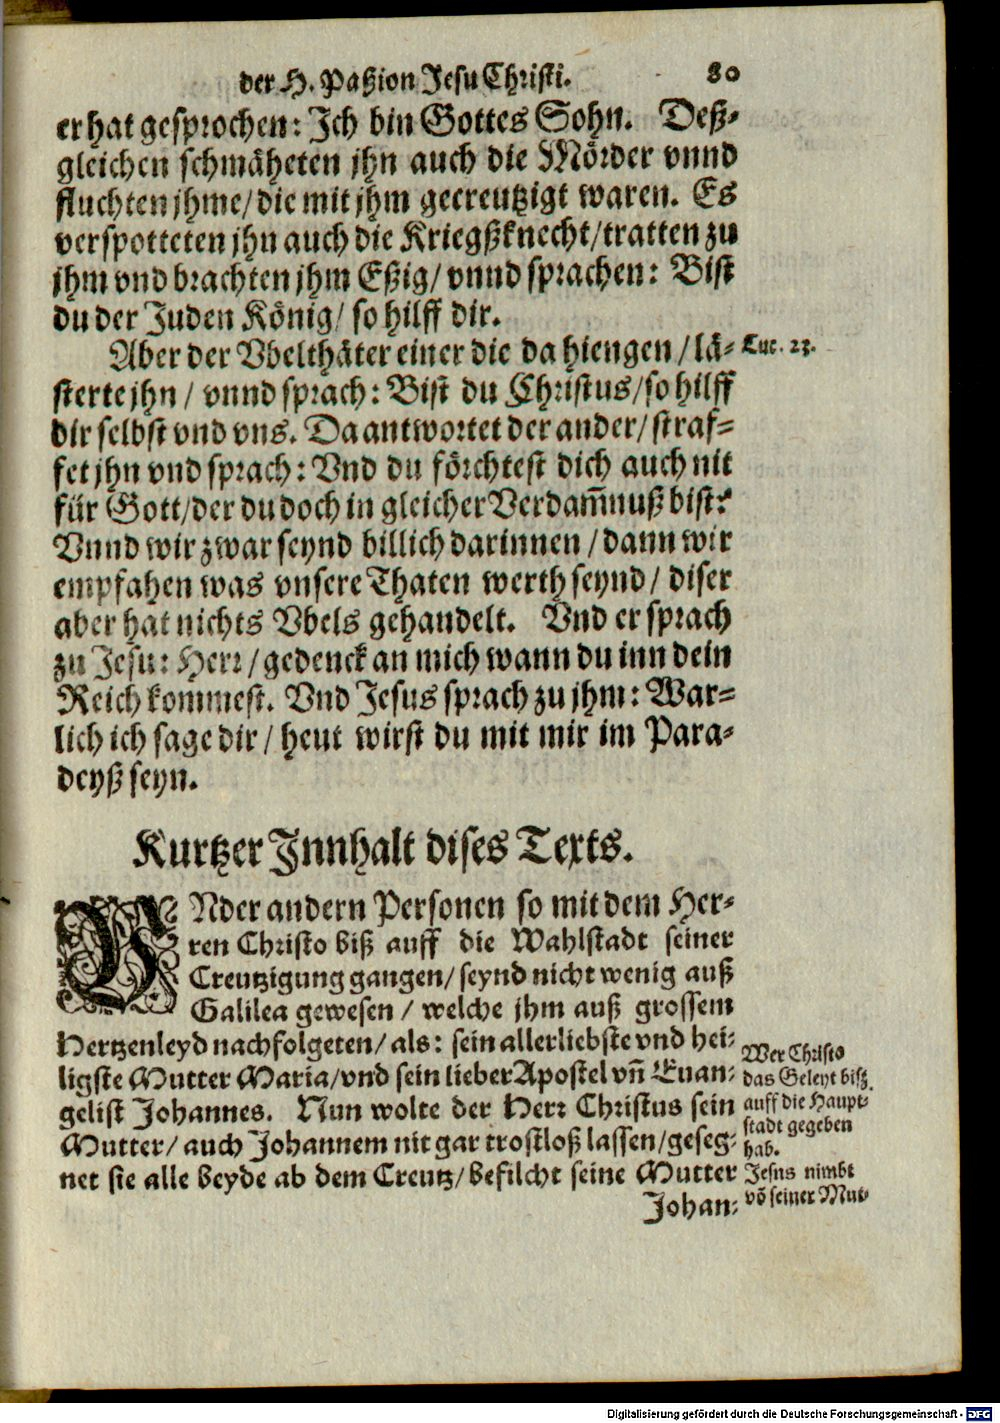 der H. Paßion Jesu Christi. 80
er hat gesprochen: Ich bin Gottes Sohn. Deß-
gleichen schmäheten jhn auch die Mörder vnnd
fluchten jhme/ die mit jhm gecreutzigt waren. Es
verspotteten jhn auch die Kriegßknecht/ tratten zu
jhm vnd brachten jhm Eßig/ vnnd sprachen: Bist
du der Juden König/ so hilff dir.
Aber der Vbelthäter einer die da hiengen/ lä-
sterte jhn/ vnnd sprach: Bist du Christus/ so hilff
dir selbst vnd vns. Da antwortet der ander/ straf-
fet jhn vnd sprach: Vnd du förchtest dich auch nit
für Gott/ der du doch in gleicher Verdam̄nuß bist?
Vnnd wir zwar seynd billich darinnen/ dann wir
empfahen was vnsere Thaten werth seynd/ diser
aber hat nichts Vbels gehandelt. Vnd er sprach
zu Jesu: Herr/ gedenck an mich wann du inn dein
Reich kommest. Vnd Jesus sprach zu jhm: War-
lich ich sage dir/ heut wirst du mit mir im Para-
deyß seyn.
Luc. 23.
Kurtzer Innhalt dises Texts.
VNder andern Personen so mit dem Her-
ren Christo biß auff die Wahlstadt seiner
Creutzigung gangen/ seynd nicht wenig auß
Galilea gewesen/ welche jhm auß grossem
Hertzenleyd nachfolgeten/ als: sein allerliebste vnd hei-
ligste Mutter Maria/ vnd sein lieber Apostel vñ Euan-
gelist Johannes. Nun wolte der Herr Christus sein
Mutter/ auch Johannem nit gar trostloß lassen/ geseg-
net sie alle beyde ab dem Creutz/ befilcht seine Mutter
Johan-
Wer Christo
das Geleyt biß
auff die Haupt-
stadt gegeben
hab.
Jesus nimbt
võ seiner Mut-
Digitalisierung gefördert durch die Deutsche Forschungsgemeinschaft - DFG